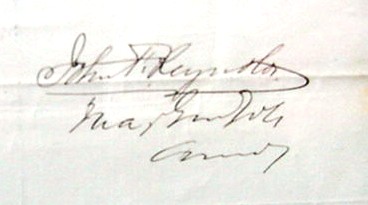 John F. Reynolds
Maj Genl Vols
Comdg